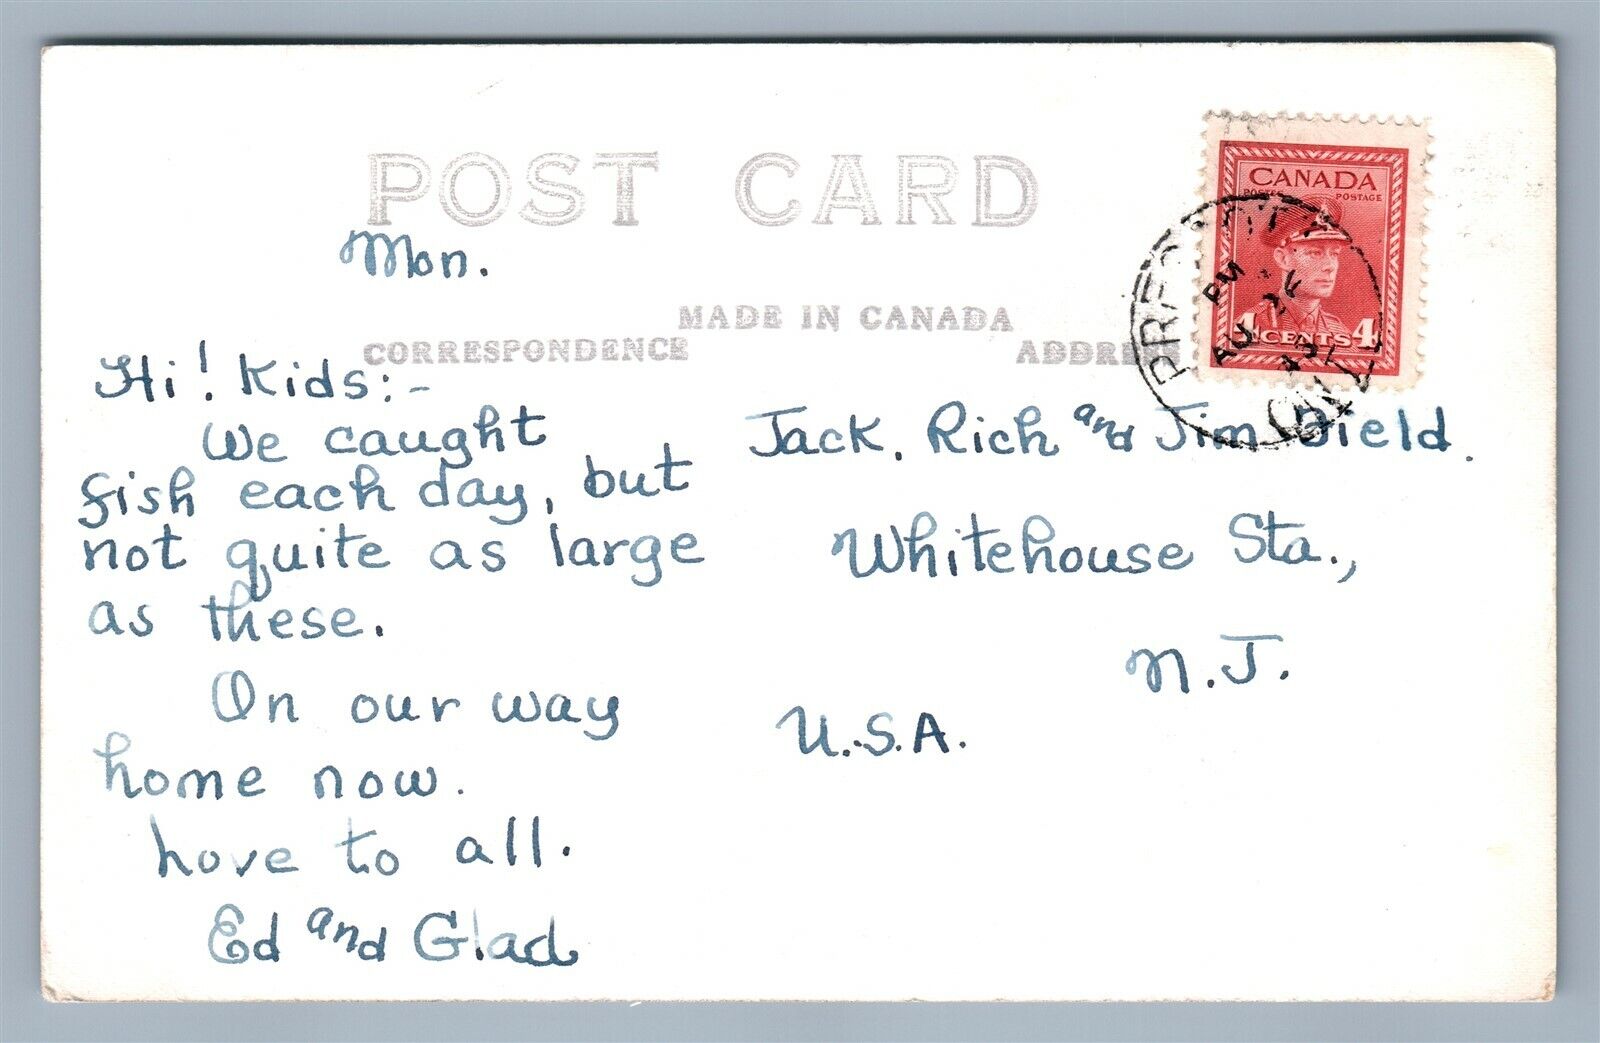 POST CARD
CANADA
POSTES POSTAGE
4 CENTS 4
PM
AU 26
ONT
Mon.
MADE IN CANADA
CORRESPONDENCE
Hi! Kids:-
We caught
fish each day, but
not quite as large
as these.
On our way
home now.
Love to all.
Ed and Glad
Jack, Rich and Jim Dield.
Whitehouse Sta.,
N.J.
U.S.A.